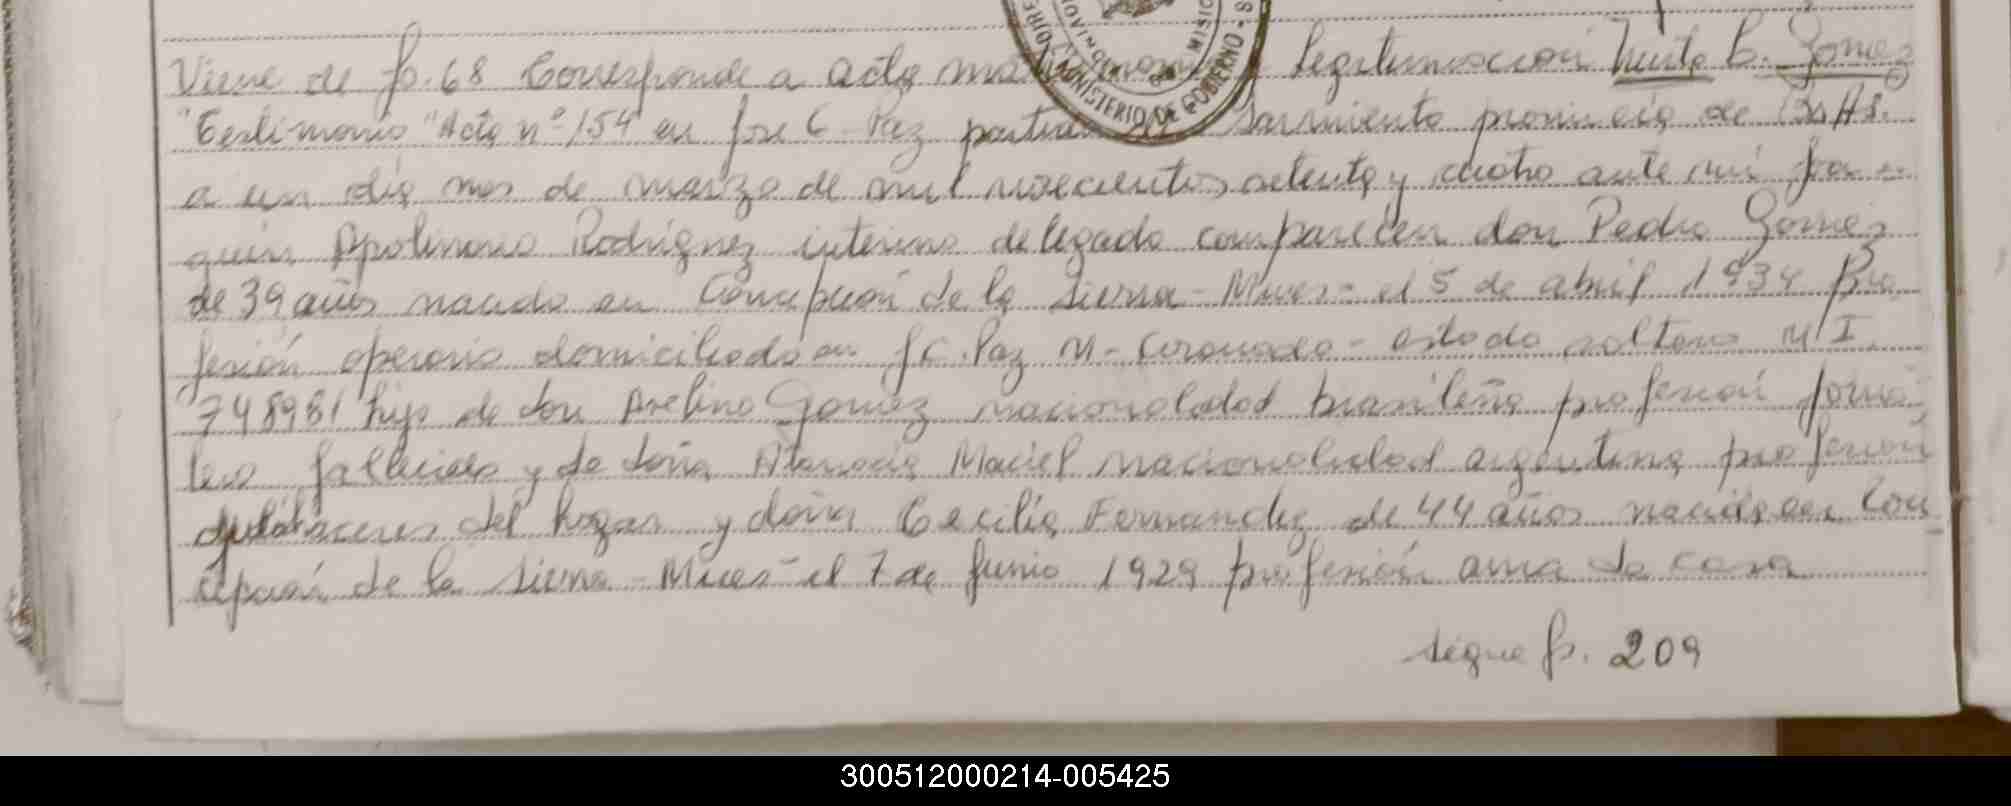 Viene de fo. 68 Corresponde a acta Legitimacion B. Gomez
"Testimonio" Acta nº 154 en Jose C. Paz partido Sarmiento provincia de Bs As.
a un dia mes de marzo de mil novecientos setenta y cuatro ante mi Joa-
quin Apolinario Rodriguez interino delegado comparecen don Pedro Gomez
de 39 años nacido en Concepcion de la Sierra - Mnes - el 5 de abril 1934 pro
fesión operario domiciliado en J C. Paz M- Coronado - estado soltero M I.
748981 hijo de don Avelino Gomez nacionalidad brasileña profesion jorna
lero fallecido y de doña Maciel nacionalidad argentina profesion
quehaceres del hogar y doña Cecilia Fernandez de 44 años nacida en Con
cepcion de la Sierra - Mnes - el 7 de Junio 1929 profesión ama de casa
sigue fo. 209
MINISTERIO DE GOBIERNO
300512000214-005425